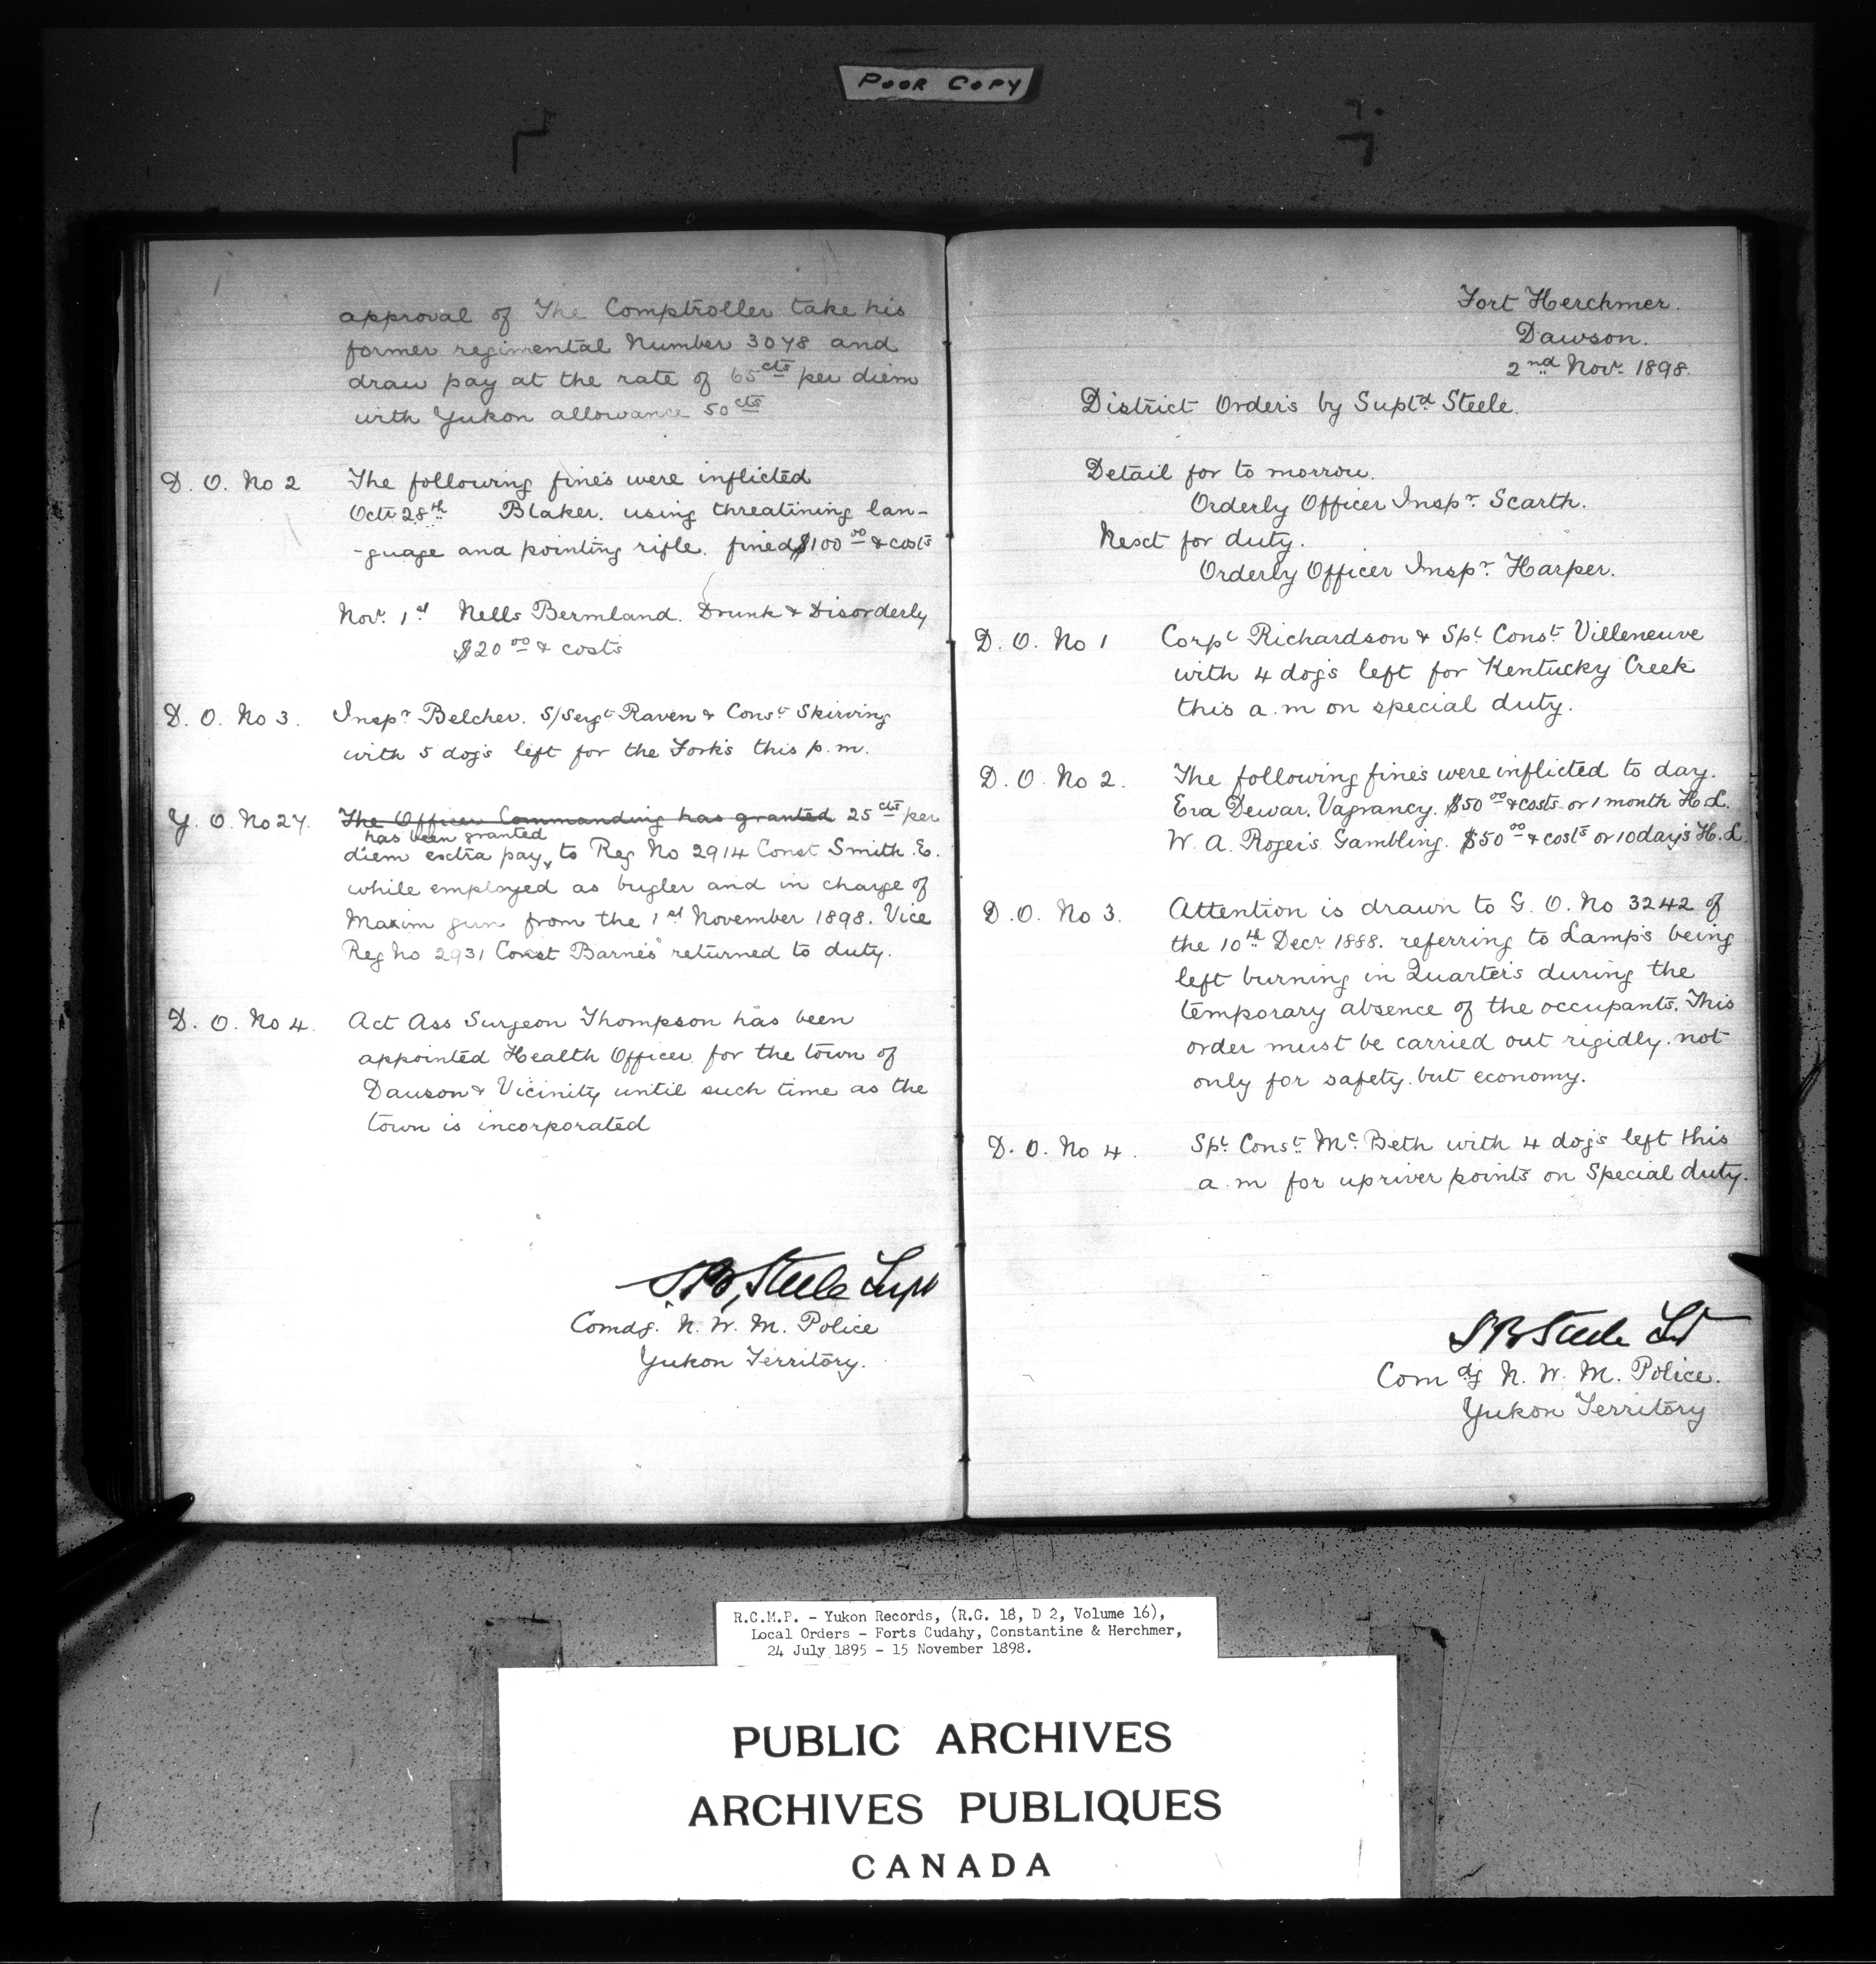 POOR COPY
approval of The Comptroller take his
former regimental Number 3078 and
draw pay at the rate of 65cts per diem
with Yukon allowance 50cts
D. O. No 2 The following fines were inflicted
Oct 28th Blaker. using threatining lan-
-guage and pointing rifle. fined $100 00 & costs
Nov. 1st Nells Bermland. Drunk & Disorderly
$20 00 & costs
D. O. No 3. Inspr Belcher. S/Sergt Raven & Const Skirving
with 5 dogs left for the Forks this p.m.
Y. O. No 27. The Officer Commanding has granted 25 cts per
has been granted
diem extra pay, to Reg No 2914 Const Smith. E.
while employed as bugler and in charge of
Maxim gun from the 1st November 1898. Vice
Reg No 2931 Const Barnes returned to duty.
D. O. No 4. Act Ass Surgeon Thompson has been
appointed Health Officer for the town of
Dawson & Vicinity until such time as the
town is incorporated
S.B. Steele Supt
Comdg. N. W. M. Police
Yukon Territory.
Fort Herchmer.
Dawson.
2nd Nov. 1898.
District Orders by Suptd Steele.
Detail for to morrow.
Orderly Officer Inspr. Scarth.
Next for duty.
Orderly Officer Inspr. Harper.
D. O. No 1 Corpl Richardson & Spl Const. Villeneuve
with 4 dogs left for Kentucky Creek
this a.m on special duty.
D. O. No 2. The following fines were inflicted to day.
Eva Dewar. Vagrancy. $50 00 & costs or 1 month H.L.
W. A. Rogers. Gambling. $50 00 & costs or 10 days H.L.
D. O. No 3. Attention is drawn to G. O. No 3242 of
the 10th Decr 1888. referring to Lamps being
left burning in Quarters during the
temporary absence of the occupants. This
order must be carried out rigidly. not
only for safety. but economy.
D. O. No 4. Spl Const. McBeth with 4 dogs left this
a.m for upriver points on Special duty.
S B Steele Supt
Comdg N. W. M. Police.
Yukon Territory
R.C.M.P. - Yukon Records, (R.G. 18, D 2, Volume 16),
Local Orders - Forts Cudahy, Constantine & Herchmer,
24 July 1895 - 15 November 1898.
PUBLIC ARCHIVES
ARCHIVES PUBLIQUES
CANADA